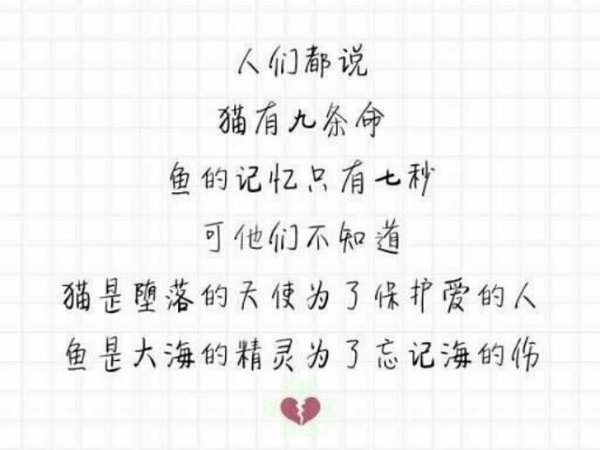 人们都说
猫有九条命
鱼的记忆只有七秒
可他们不知道
猫是堕落的天使为了保护爱的人
鱼是大海的精灵为了忘记海的伤